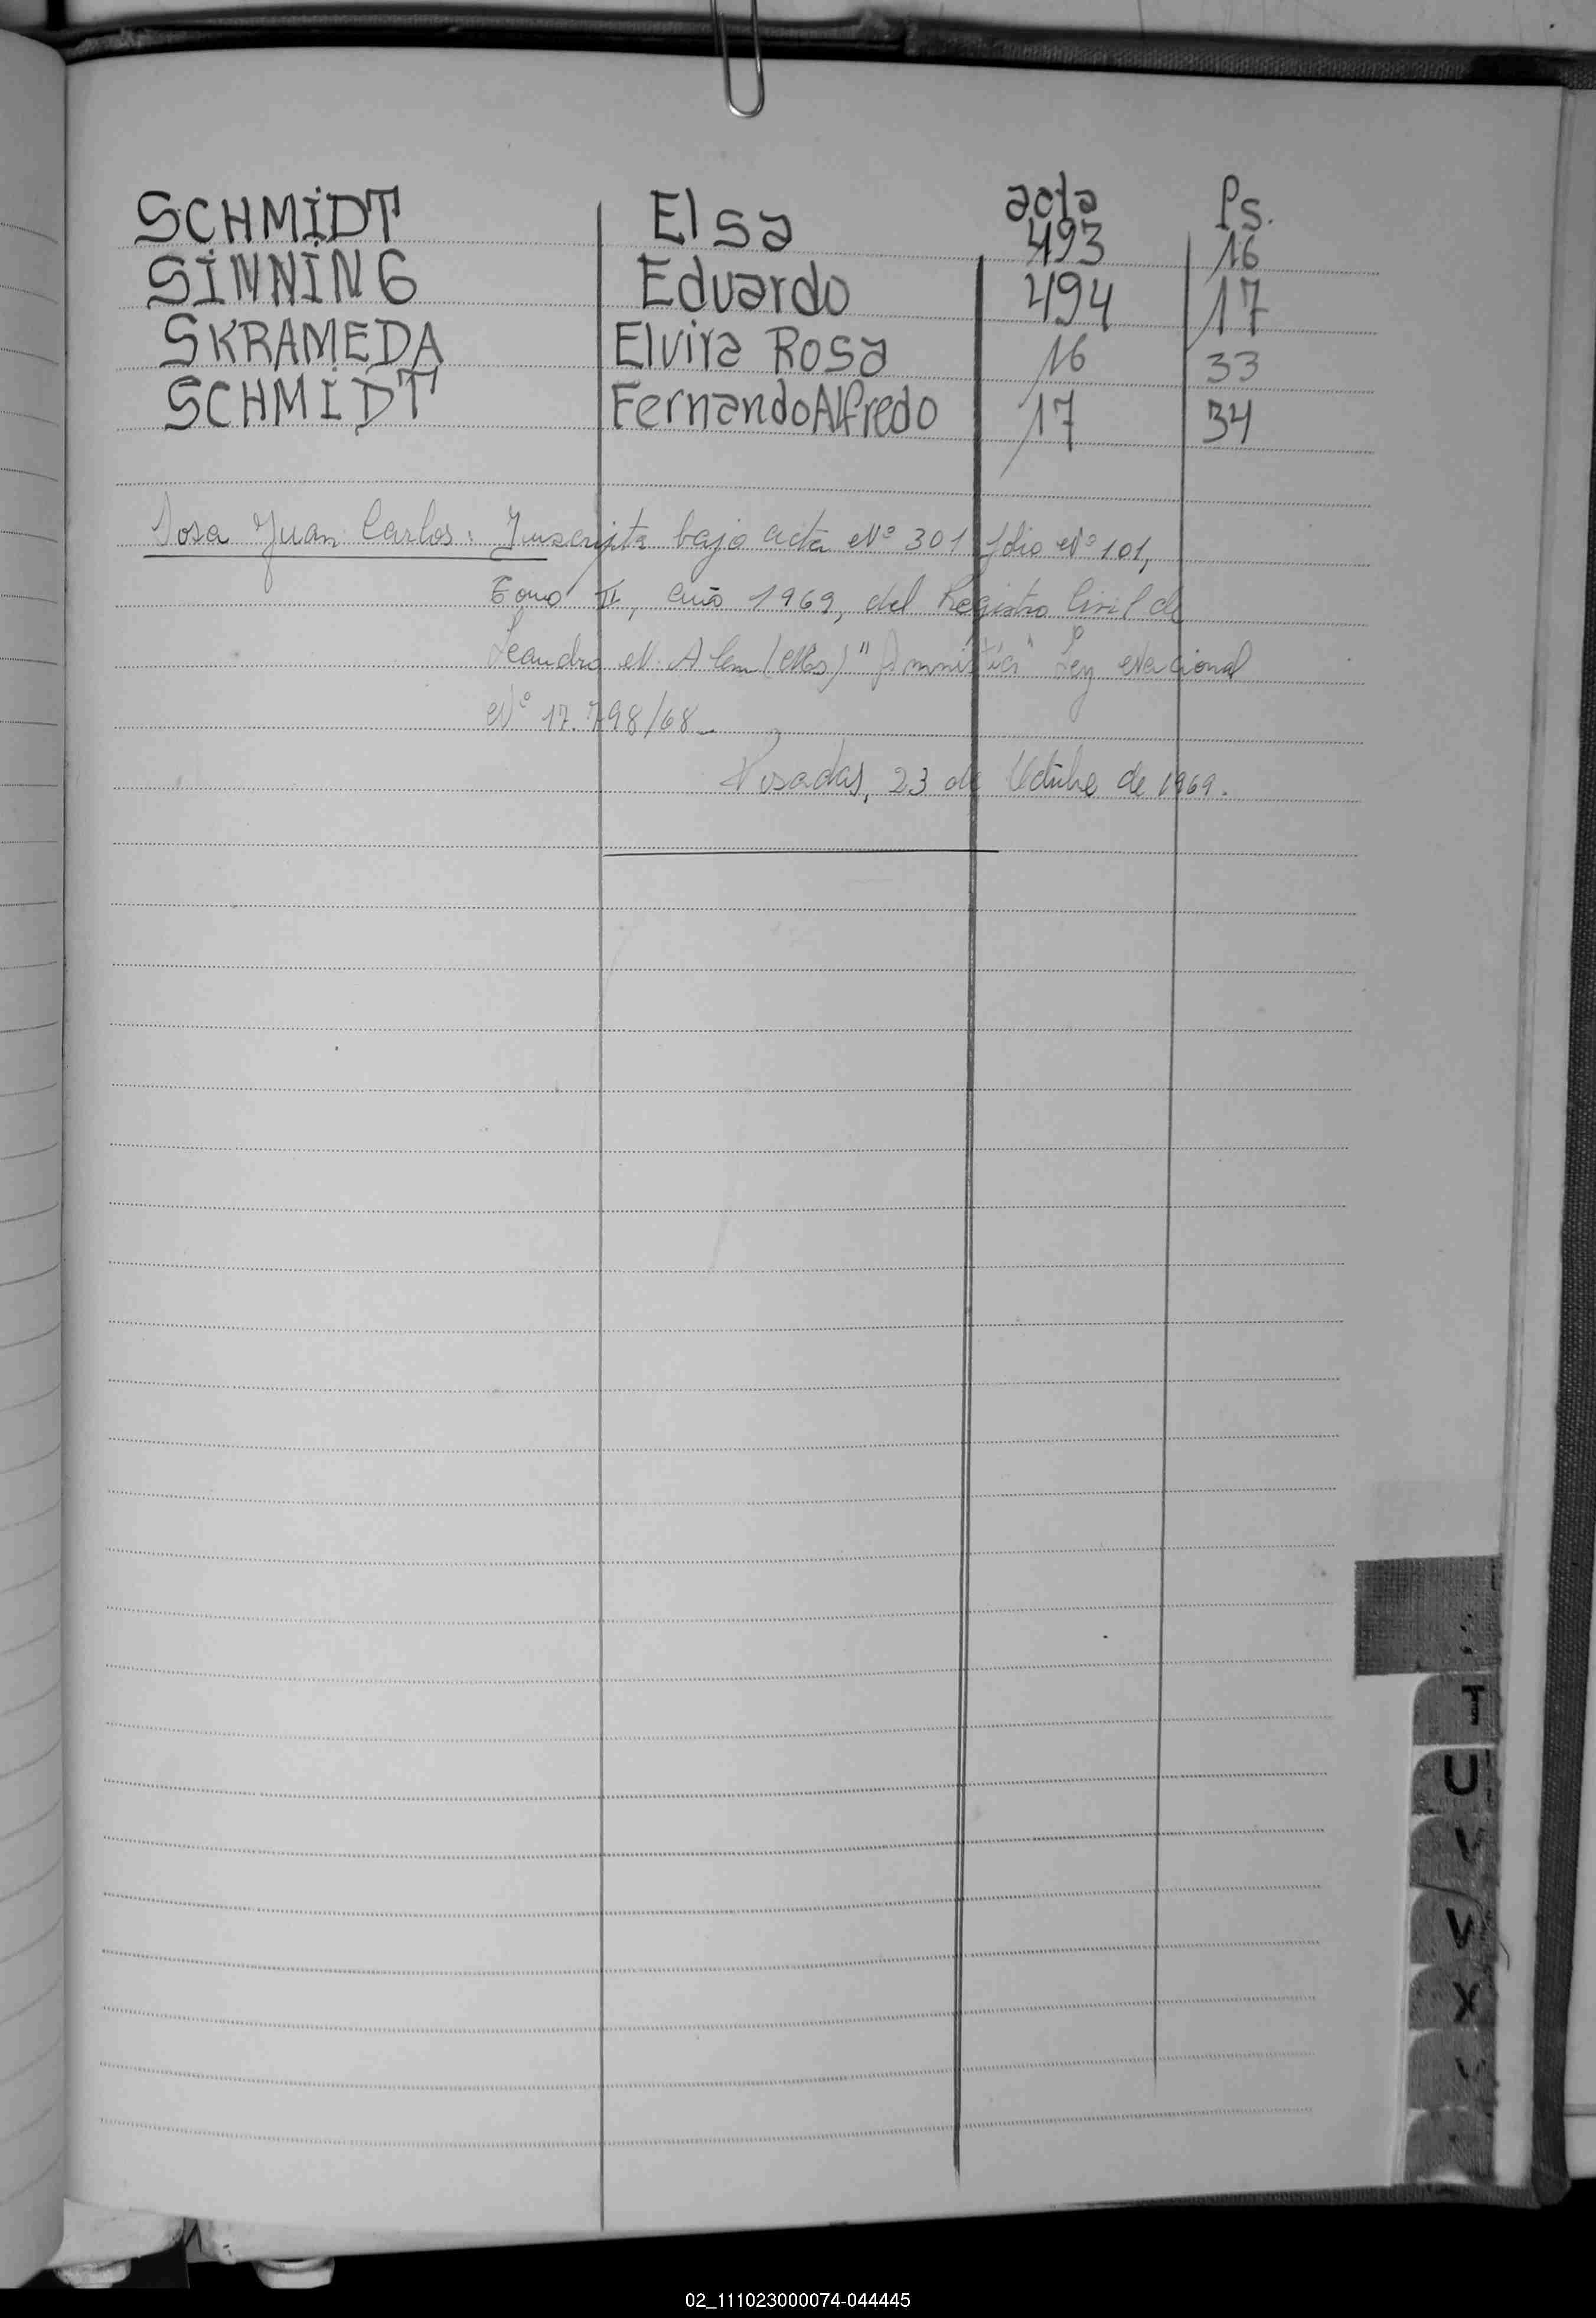 acta Ps.
SCHMIDT Elsa 493 16
SINNING Eduardo 494 17
SKRAMEDA Elvira Rosa 16 33
SCHMIDT Fernando Alfredo 17 34
Sosa Juan Carlos: Inscripta bajo acta Nº 301 folio Nº 101,
Tomo II, año 1969, del Registro Civil de
Leandro N. Alem (Mes) "Amnistia" Ley Nacional
Nº 17.798/68_
Posadas, 23 de Octubre de 1969.
T
U
V
V
X
02_111023000074-044445